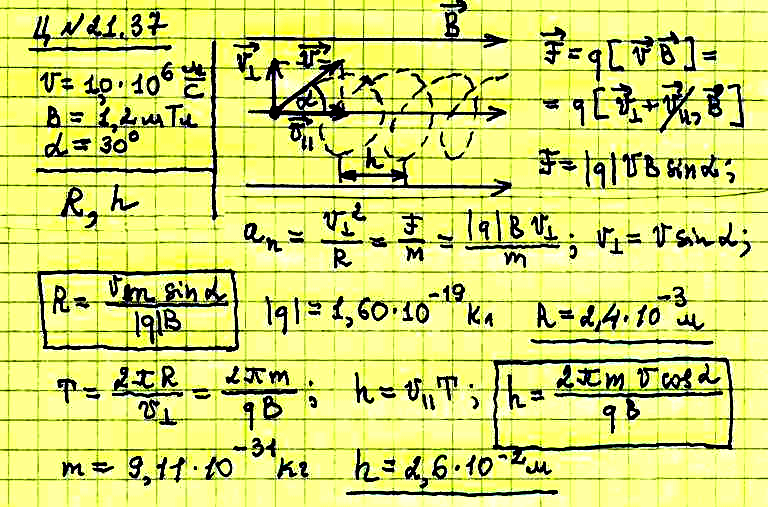 Ц N21.37
v = 1,0·10⁶ м/с
B = 1,2 мТл
α = 30°
R, h
v⃗⊥ v⃗ B⃗
α
v⃗||
h
F⃗ = q[v⃗ B⃗] =
= q[v⃗⊥ + v⃗||, B⃗]
F = |q| v B sin α;
aₙ = v⊥²/R = F/m = |q| B v⊥/m; v⊥ = v sin α;
R = v m sin α/|q|B |q| = 1,60·10⁻¹⁹ Кл R = 2,4·10⁻³ м
T = 2πR/v⊥ = 2πm/qB; h = v|| T; h = 2πm v cos α/qB
m = 9,11·10⁻³¹ кг h = 2,6·10⁻² м